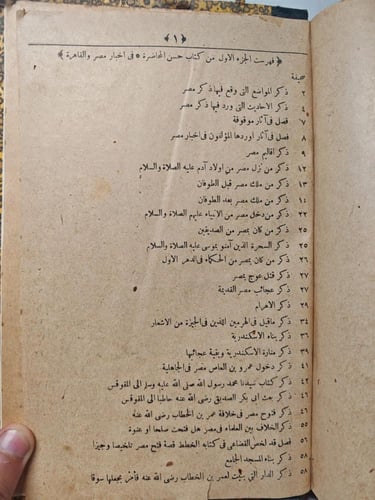 ﴿ ١ ﴾
﴿ فهرست الجزء الاول من كتاب حسن المحاضرة ٥ فى اخبار مصر والقاهرة ﴾
صحيفة
٢ ذكر المواضع التى وقع فيها ذكر مصر
٤ ذكر الاحاديث التى ورد فيها ذكر مصر
٧ فصل فى آثار موقوفة
٨ فصل فى آثار اوردها المؤلفون فى اخبار مصر
٩ ذكر اقاليم مصر
١٢ ذكر من نزل مصر من اولاد آدم عليه الصلاة والسلام
١٣ ذكر من ملك مصر قبل الطوفان
١٤ ذكر من ملك مصر بعد الطوفان
٢٢ ذكر من دخل مصر من الانبياء عليهم الصلاة والسلام
٢٥ ذكر من كان بمصر من الصديقين
٢٥ ذكر السحرة الذين آمنوا بموسى عليه الصلاة والسلام
٢٦ ذكر من كان بمصر من الحكماء فى الدهر الاول
٢٧ ذكر قتل عوج بمصر
٢٧ ذكر عجائب مصر القديمة
٢٩ ذكر الاهرام
٣٤ ذكر ماقيل فى الهرمين اللذين فى الجيزة من الاشعار
٣٦ ذكر بناء الاسكندرية
٣٩ ذكر منارة الاسكندرية وبقية عجائبها
٤١ ذكر دخول عمرو بن العاص مصر فى الجاهلية
٤٢ ذكر كتاب سيدنا محمد رسول الله صلى الله عليه وسلم الى المقوقس
٤٤ ذكر بعث ابى بكر الصديق رضى الله عنه حاطبا الى المقوقس
ذكر فتوح مصر فى خلافة عمر بن الخطاب رضى الله عنه
ذكر الخلاف بين العلماء فى مصر هل فتحت صلحا او عنوة
فصل قد لخص القضاعى فى كتابه الخطط قصة فتح مصر تلخيصا وجيزا
ذكر بناء المسجد الجامع
٥٨ ذكر الدار التى بنيت لعمر بن الخطاب رضى الله عنه فأمر بجعلها سوقا